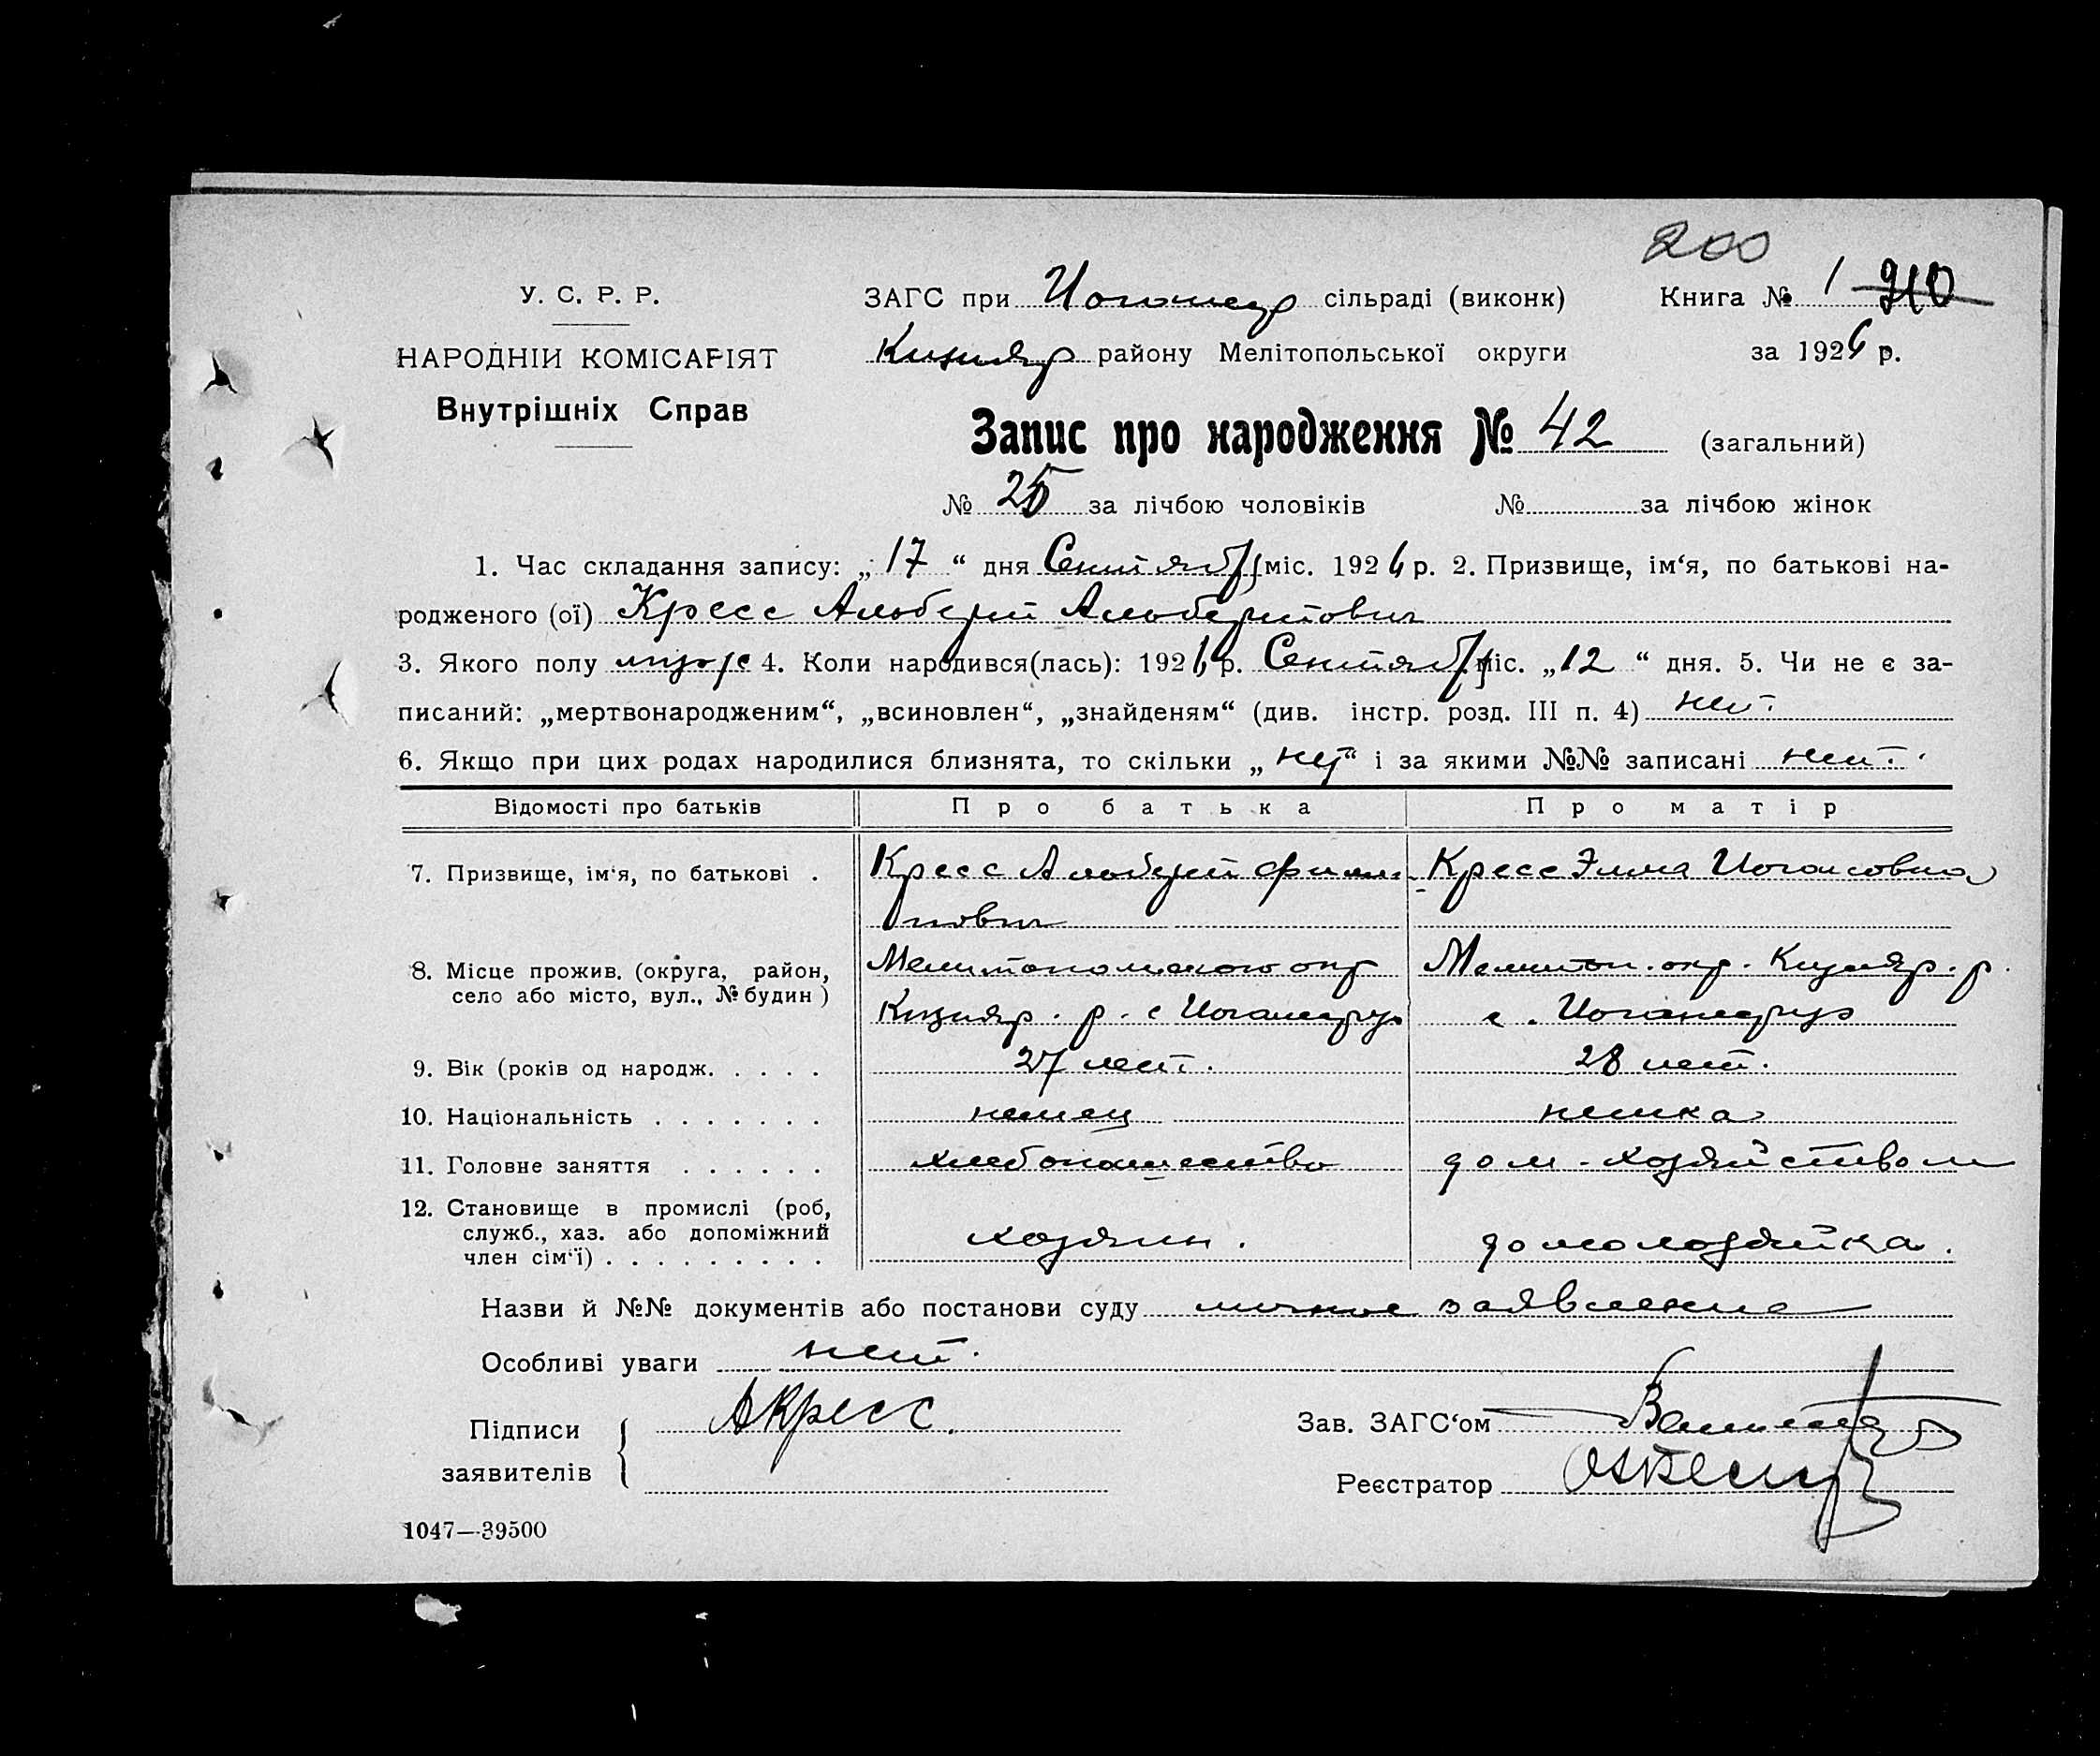 200
У. С. Р. Р.
ЗАГС при Иоганесру сільраді (виконк)
Книга № 1 210
НАРОДНІЙ КОМІСАРІЯТ
Кизияр району Мелітопольської округи
за 1926 р.
Внутрішніх Справ
Запис про народження № 42 (загальний)
№ 25 за лічбою чоловіків № за лічбою жінок
1. Час складання запису: „ 17 “ дня Сентября міс. 1926 р. 2. Призвище, ім‘я, по батькові на-
родженого (ої) Кресс Альберт Альбертович
3. Якого полу мужс 4. Коли народився(лась): 1926 р. Сентября міс. „ 12 “ дня. 5. Чи не є за-
писаний: „мертвонародженим“, „всиновлен“, „знайденям“ (див. інстр. розд. III п. 4) нет.
6. Якщо при цих родах народилися близнята, то скільки „ нет “ і за якими №№ записані нет.
Відомості про батьків
Про батька
Про матір
7. Призвище, ім‘я, по батькові .
Кресс Альберт Фили-
пович
Кресс Эмма Иогансовна
8. Місце прожив. (округа, район,
село або місто, вул., № будин )
Мелитопольского окр
Кизияр. р. с Иоганесруэ
Мелитоп. окр. Кизияр. р.
с. Иоганесруэ
9. Вік (років од народж. . . . .
27 лет.
28 лет.
10. Національність . . . . . . .
немец
немка
11. Головне заняття . . . . . .
хлебопашество
дом. хозяйством
12. Становище в промислі (роб,
служб., хаз. або допоміжний
член сім‘ї) . . . . . . . . .
хозяин.
домохозяйка.
Назви й №№ документів або постанови суду личное заявление
Особливі уваги нет.
Підписи
заявителів
АКресс.
Зав. ЗАГС‘ом
Реєстратор
1047—39500